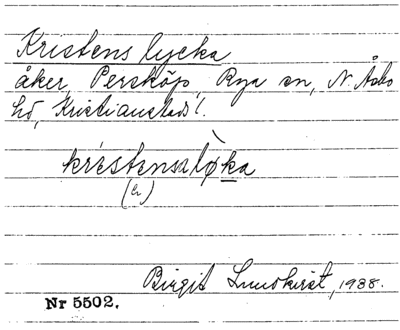 Kristens lycka
åker, Persköp, Rya sn, N. Åsbo
hd, Kristianstads l.
kristensaløka
(er)
Birgit Lundkvist, 1938.
Nr 5502.